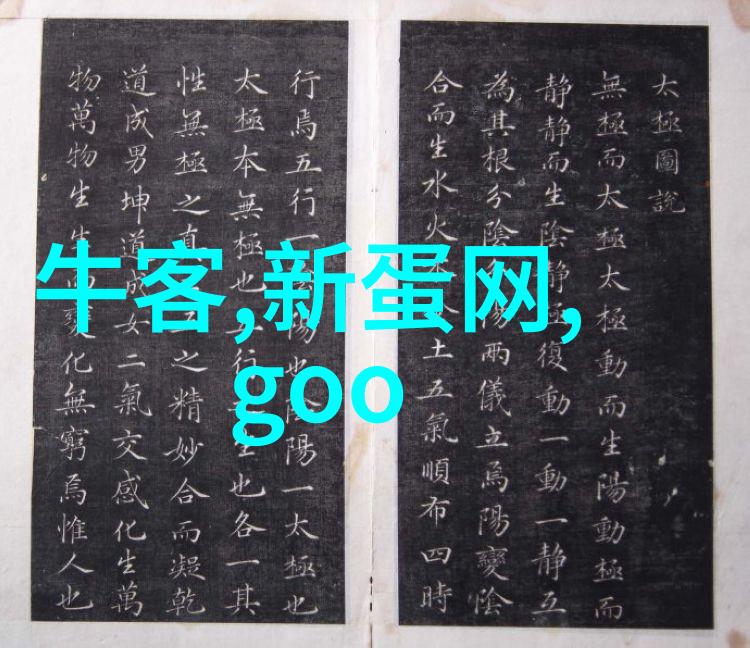 太極圖說
無極而太極太極動而生陽動極而
静静而生陰静極復動一動一静互
為其根分陰陽兩儀立焉陽變陰
合而生水火土五氣順布四時
行焉五行一陰陽也陰陽一太極也
太極本無極也行生也各一其
性無極之真之精妙合而凝乾
道成男坤道成女二氣交感化生萬
物萬物生生而變化無窮焉惟人也
牛客,新蛋网,
goo